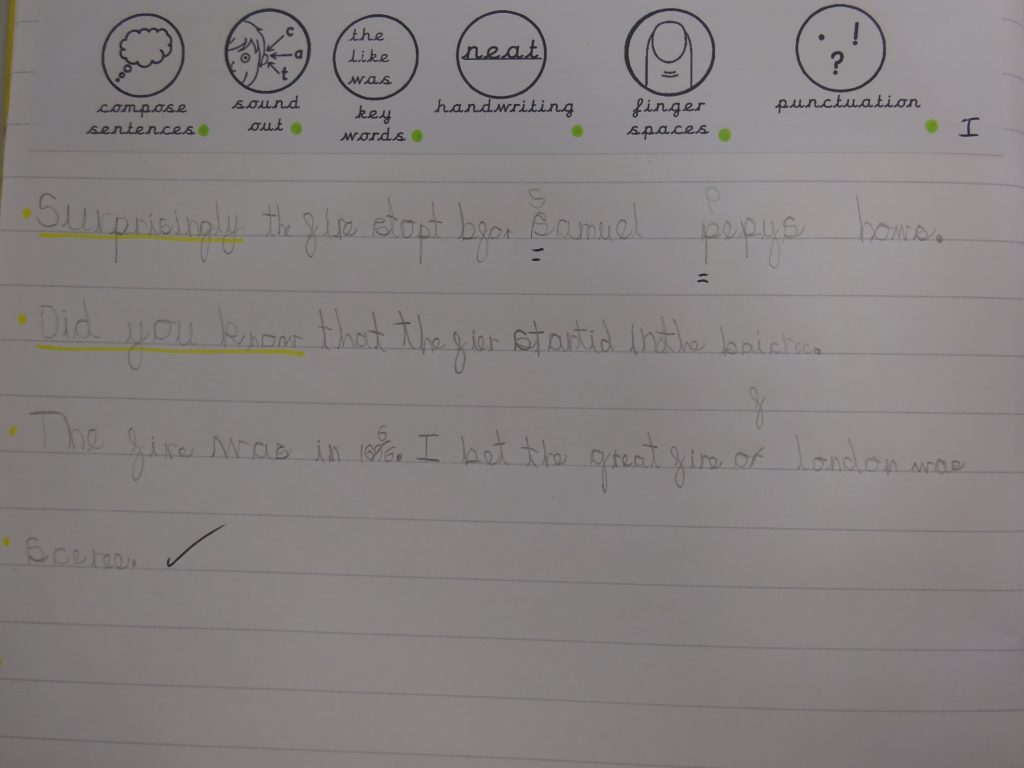 the
like
was
neat
c
a
t
. ! ?
compose sentences
sound out
key words
handwriting
finger spaces
punctuation
I
S P
Surprisingly the fire stopt befor samuel pepys home.
Did you know that the fier startid in the
f
The fire was in I bet the great fire of london was